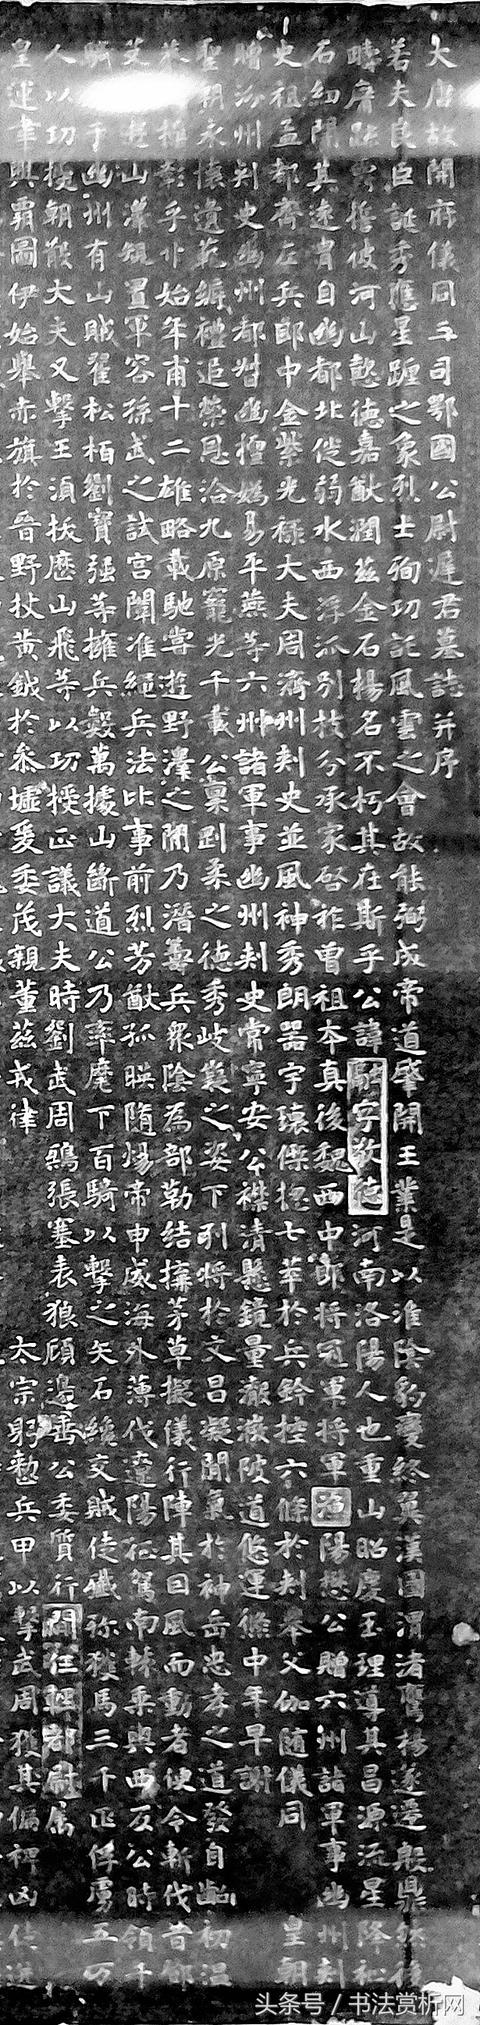 大唐故開府儀同三司鄂國公尉遲君墓誌并序
若夫良臣誕秀應星躔之象烈士殉功託風雲之會故能弼成帝道肇開王業是以淮陰豹變終翼漢圖渭渚鷹揚遂遷殷鼎
疇庸 誓彼河山懿德嘉猷潤茲金石揚名不朽其在斯乎公諱融字敬德河南洛陽人也重山昭慶玉理導其昌源流星降祉
石紐開其遠胄自幽都北徙弱水西浮派別枝分承家啓祚曾祖本真後魏西中郎將冠軍將軍漁陽懋公贈六州諸軍事幽州刺
史祖孟都齊左兵郎中金紫光祿大夫周濟州刺史並風神秀朗器宇瓌傑 七萃於兵鈐控六條於刺舉父伽隨儀同 皇朝
贈汾州刺史幽州都督幽檀媯易平燕等六州諸軍事幽州刺史常寧安公襟清懸鏡量澈 陂道悠運 中年早謝
聖朝永懷遺範緬禮追榮恩洽九原寵光千載 公稟剛柔之德秀岐嶷之姿下列將於文昌凝閒氣於神岳忠孝之道發自齠初温
彰乎 始年甫十二雄略載馳嘗遊野澤之閒乃潛籌兵衆陰為部勒結 茅草擬儀行陣其回風而動者便令斬伐昔鄧
艾 山澤 置軍容孫武之試宮闈准繩兵法比事前烈芳猷孤暎隋煬帝申威海外薄伐遼陽征駕南 乘輿西反公時領千
騎 于幽州有山賊翟松柏劉寶强等擁兵數萬據山斷道公乃率麾下百騎以擊之矢石纔交賊徒殲殄獲馬三千匹俘虜五万
人以功授朝散大夫又擊王須拔歷山飛等以功授正議大夫時劉武周鴟張塞表狼顧邊垂公委質行間任輕都尉屬
皇運聿興霸圖伊始舉赤旗於晉野杖黃鉞於參墟爰委茂親董茲戎律 太宗躬懃兵甲以擊武周獲其偏裨凶徒進
头条号／书法赏析网